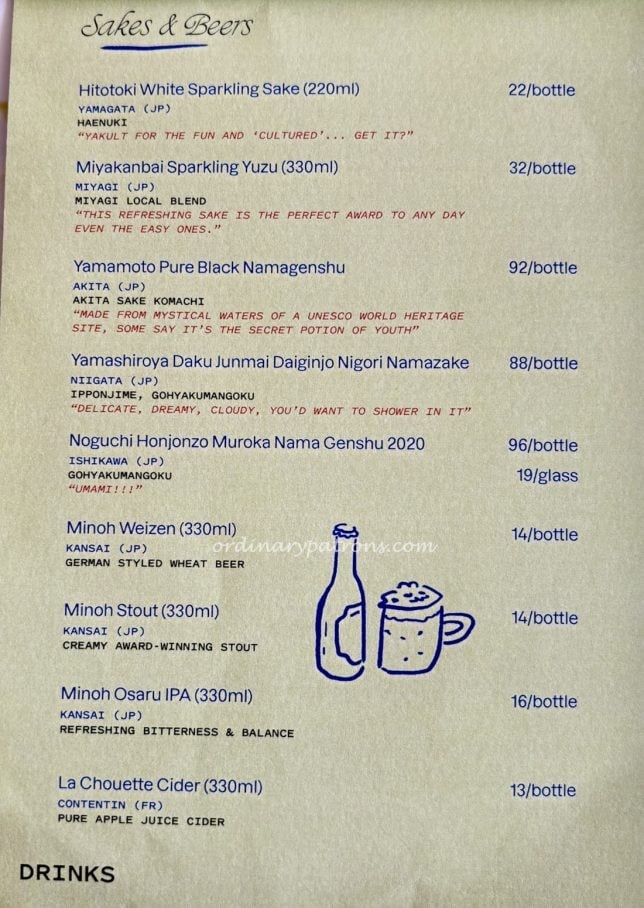 Sakes & Beers
Hitotoki White Sparkling Sake (220ml) 22/bottle
YAMAGATA (JP)
HAENUKI
"YAKULT FOR THE FUN AND 'CULTURED'... GET IT?"
Miyakanbai Sparkling Yuzu (330ml) 32/bottle
MIYAGI (JP)
MIYAGI LOCAL BLEND
"THIS REFRESHING SAKE IS THE PERFECT AWARD TO ANY DAY
EVEN THE EASY ONES."
Yamamoto Pure Black Namagenshu 92/bottle
AKITA (JP)
AKITA SAKE KOMACHI
"MADE FROM MYSTICAL WATERS OF A UNESCO WORLD HERITAGE
SITE, SOME SAY IT'S THE SECRET POTION OF YOUTH"
Yamashiroya Daku Junmai Daiginjo Nigori Namazake 88/bottle
NIIGATA (JP)
IPPONJIME, GOHYAKUMANGOKU
"DELICATE, DREAMY, CLOUDY, YOU'D WANT TO SHOWER IN IT"
Noguchi Honjonzo Muroka Nama Genshu 2020 96/bottle
ISHIKAWA (JP)
GOHYAKUMANGOKU 19/glass
"UMAMI!!!"
Minoh Weizen (330ml) 14/bottle
KANSAI (JP)
ordinarypatrons.com
GERMAN STYLED WHEAT BEER
Minoh Stout (330ml) 14/bottle
KANSAI (JP)
CREAMY AWARD-WINNING STOUT
Minoh Osaru IPA (330ml) 16/bottle
KANSAI (JP)
REFRESHING BITTERNESS & BALANCE
La Chouette Cider (330ml) 13/bottle
CONTENTIN (FR)
PURE APPLE JUICE CIDER
DRINKS